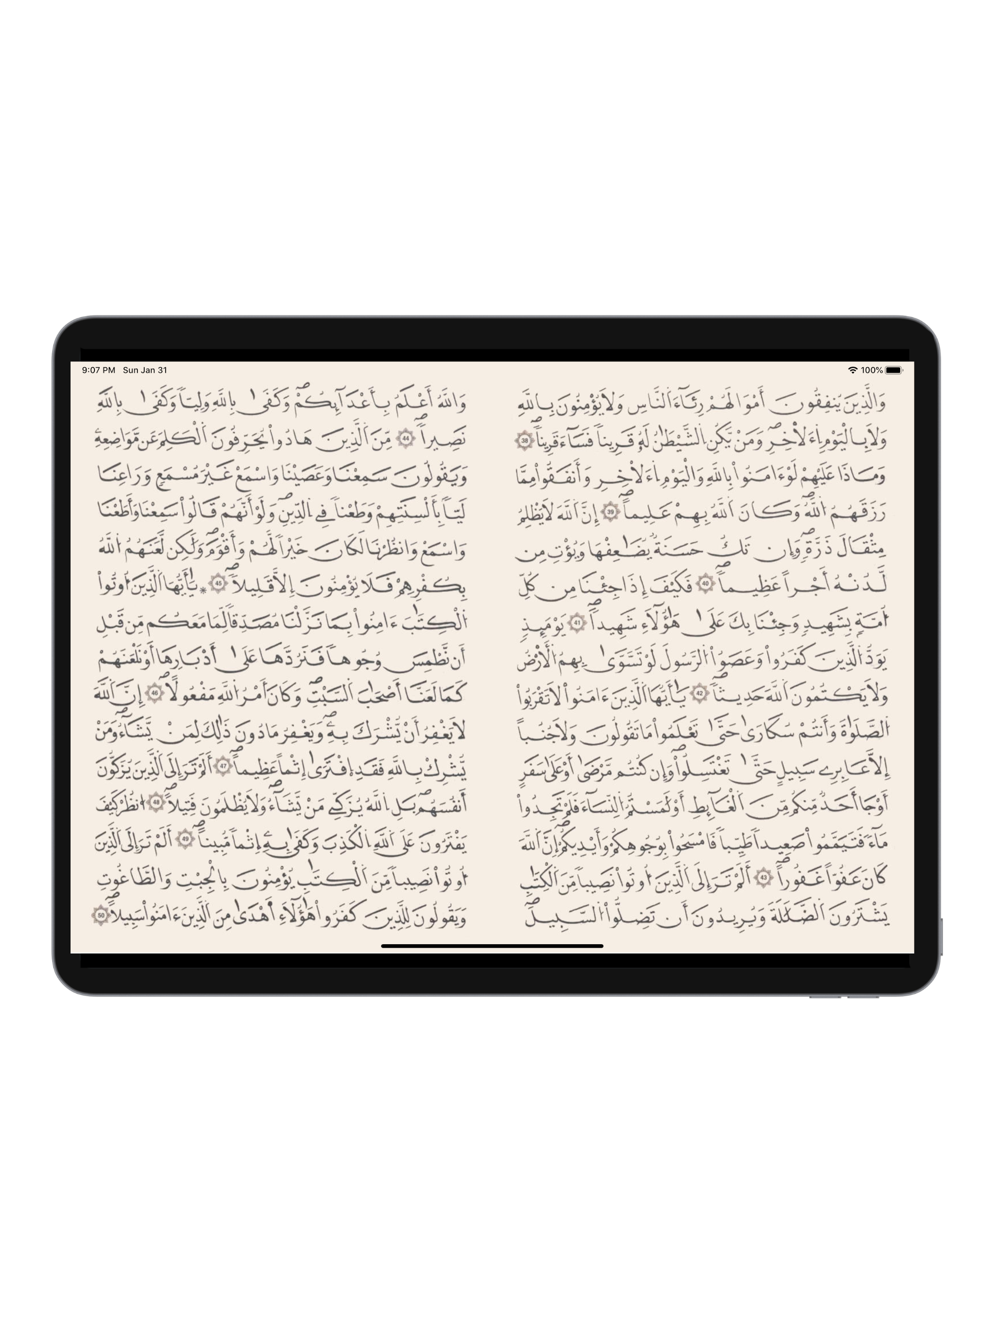 9:07 PM Sun Jan 31 100%
وَالَّذِينَ يُنفِقُونَ أَمْوَالَهُمْ رِئَآءَ اَلنَّاسِ وَلَا يُؤْمِنُونَ بِاللَّهِ
وَلَا بِالْيَوْمِ اِءَلَاخِرِ وَمَنْ يَّكُنِ اِلشَّيْطَٰنُ لَهُۥ قَرِيناً فَسَآءَ قَرِيناً 38
وَمَاذَا عَلَيْهِمْ لَوَ ءَامَنُواْ بِاللَّهِ وَالْيَوْمِ اِءَلَاخِرِ وَأَنفَقُواْ مِمَّا
رَزَقَهُمُ اُللَّهُ وَكَانَ اَللَّهُ بِهِمْ عَلِيماً 39 إِنَّ اَللَّهَ لَا يَظْلِمُ
مِثْقَالَ ذَرَّةٍ وَإِن تَكُ حَسَنَةٌ يُضَٰعِفْهَا وَيُؤْتِ مِن
لَّدُنْهُ أَجْراً عَظِيماً 40 فَكَيْفَ إِذَا جِئْنَا مِن كُلِّ
أُمَّةِۢ بِشَهِيدٍ وَجِئْنَا بِكَ عَلَىٰ هَٰٓؤُلَآءِ شَهِيداً 41 يَوْمَئِذٍ
يَوَدُّ اُلَّذِينَ كَفَرُواْ وَعَصَوُاْ اُلرَّسُولَ لَوْ تَسَّوَّىٰ بِهِمُ اُلَارْضُ
وَلَا يَكْتُمُونَ اَللَّهَ حَدِيثاً 42 يَٰٓأَيُّهَا اَلَّذِينَ ءَامَنُواْ لَا تَقْرَبُواْ
اُلصَّلَوٰةَ وَأَنتُمْ سُكَٰرَىٰ حَتَّىٰ تَعْلَمُواْ مَا تَقُولُونَ وَلَا جُنُباً
اِلَّا عَابِرِے سَبِيلٍ حَتَّىٰ تَغْتَسِلُواْ وَإِن كُنتُم مَّرْضَىٰٓ أَوْ عَلَىٰ سَفَرٍ
اَوْ جَآءَ احَدٌ مِّنكُم مِّنَ اَلْغَآئِطِ أَوْ لَٰمَسْتُمُ اُلنِّسَآءَ فَلَمْ تَجِدُواْ
مَآءً فَتَيَمَّمُواْ صَعِيداً طَيِّباً فَامْسَحُواْ بِوُجُوهِكُمْ وَأَيْدِيكُمْ إِنَّ اَللَّهَ
كَانَ عَفُوّاً غَفُوراً 43 أَلَمْ تَرَ إِلَى اَلَّذِينَ أُوتُواْ نَصِيباً مِّنَ اَلْكِتَٰبِ
يَشْتَرُونَ اَلضَّلَٰلَةَ وَيُرِيدُونَ أَن تَضِلُّواْ اُلسَّبِيلَ
وَاللَّهُ أَعْلَمُ بِأَعْدَآئِكُمْ وَكَفَىٰ بِاللَّهِ وَلِيّاً وَكَفَىٰ بِاللَّهِ
نَصِيراً 44 مِّنَ اَلَّذِينَ هَادُواْ يُحَرِّفُونَ اَلْكَلِمَ عَن مَّوَاضِعِهِۦ
وَيَقُولُونَ سَمِعْنَا وَعَصَيْنَا وَاسْمَعْ غَيْرَ مُسْمَعٍ وَرَٰعِنَا
لَيّاً بِأَلْسِنَتِهِمْ وَطَعْناً فِے اِلدِّينِ وَلَوَ اَنَّهُمْ قَالُواْ سَمِعْنَا وَأَطَعْنَا
وَاسْمَعْ وَانظُرْنَا لَكَانَ خَيْراً لَّهُمْ وَأَقْوَمَ وَلَٰكِن لَّعَنَهُمُ اُللَّهُ
بِكُفْرِهِمْ فَلَا يُؤْمِنُونَ إِلَّا قَلِيلاً 45 * يَٰٓأَيُّهَا اَلَّذِينَ أُوتُواْ
اُلْكِتَٰبَ ءَامِنُواْ بِمَا نَزَّلْنَا مُصَدِّقاً لِّمَا مَعَكُم مِّن قَبْلِ
أَن نَّطْمِسَ وُجُوهاً فَنَرُدَّهَا عَلَىٰٓ أَدْبَٰرِهَآ أَوْ نَلْعَنَهُمْ
كَمَا لَعَنَّآ أَصْحَٰبَ اَلسَّبْتِ وَكَانَ أَمْرُ اُللَّهِ مَفْعُولاً 46 إِنَّ اَللَّهَ
لَا يَغْفِرُ أَنْ يُّشْرَكَ بِهِۦ وَيَغْفِرُ مَا دُونَ ذَٰلِكَ لِمَنْ يَّشَآءُ وَمَنْ
يُّشْرِكْ بِاللَّهِ فَقَدِ اِفْتَرَىٰٓ إِثْماً عَظِيماً 47 أَلَمْ تَرَ إِلَى اَلَّذِينَ يُزَكُّونَ
أَنفُسَهُم بَلِ اِللَّهُ يُزَكِّے مَنْ يَّشَآءُ وَلَا يُظْلَمُونَ فَتِيلاً 48 اُنظُرْ كَيْفَ
يَفْتَرُونَ عَلَى اَللَّهِ اِلْكَذِبَ وَكَفَىٰ بِهِۦٓ إِثْماً مُّبِيناً 49 أَلَمْ تَرَ إِلَى اَلَّذِينَ
أُوتُواْ نَصِيباً مِّنَ اَلْكِتَٰبِ يُؤْمِنُونَ بِالْجِبْتِ وَالطَّٰغُوتِ
وَيَقُولُونَ لِلَّذِينَ كَفَرُواْ هَٰٓؤُلَآءِ أَهْدَىٰ مِنَ اَلَّذِينَ ءَامَنُواْ سَبِيلاً 50